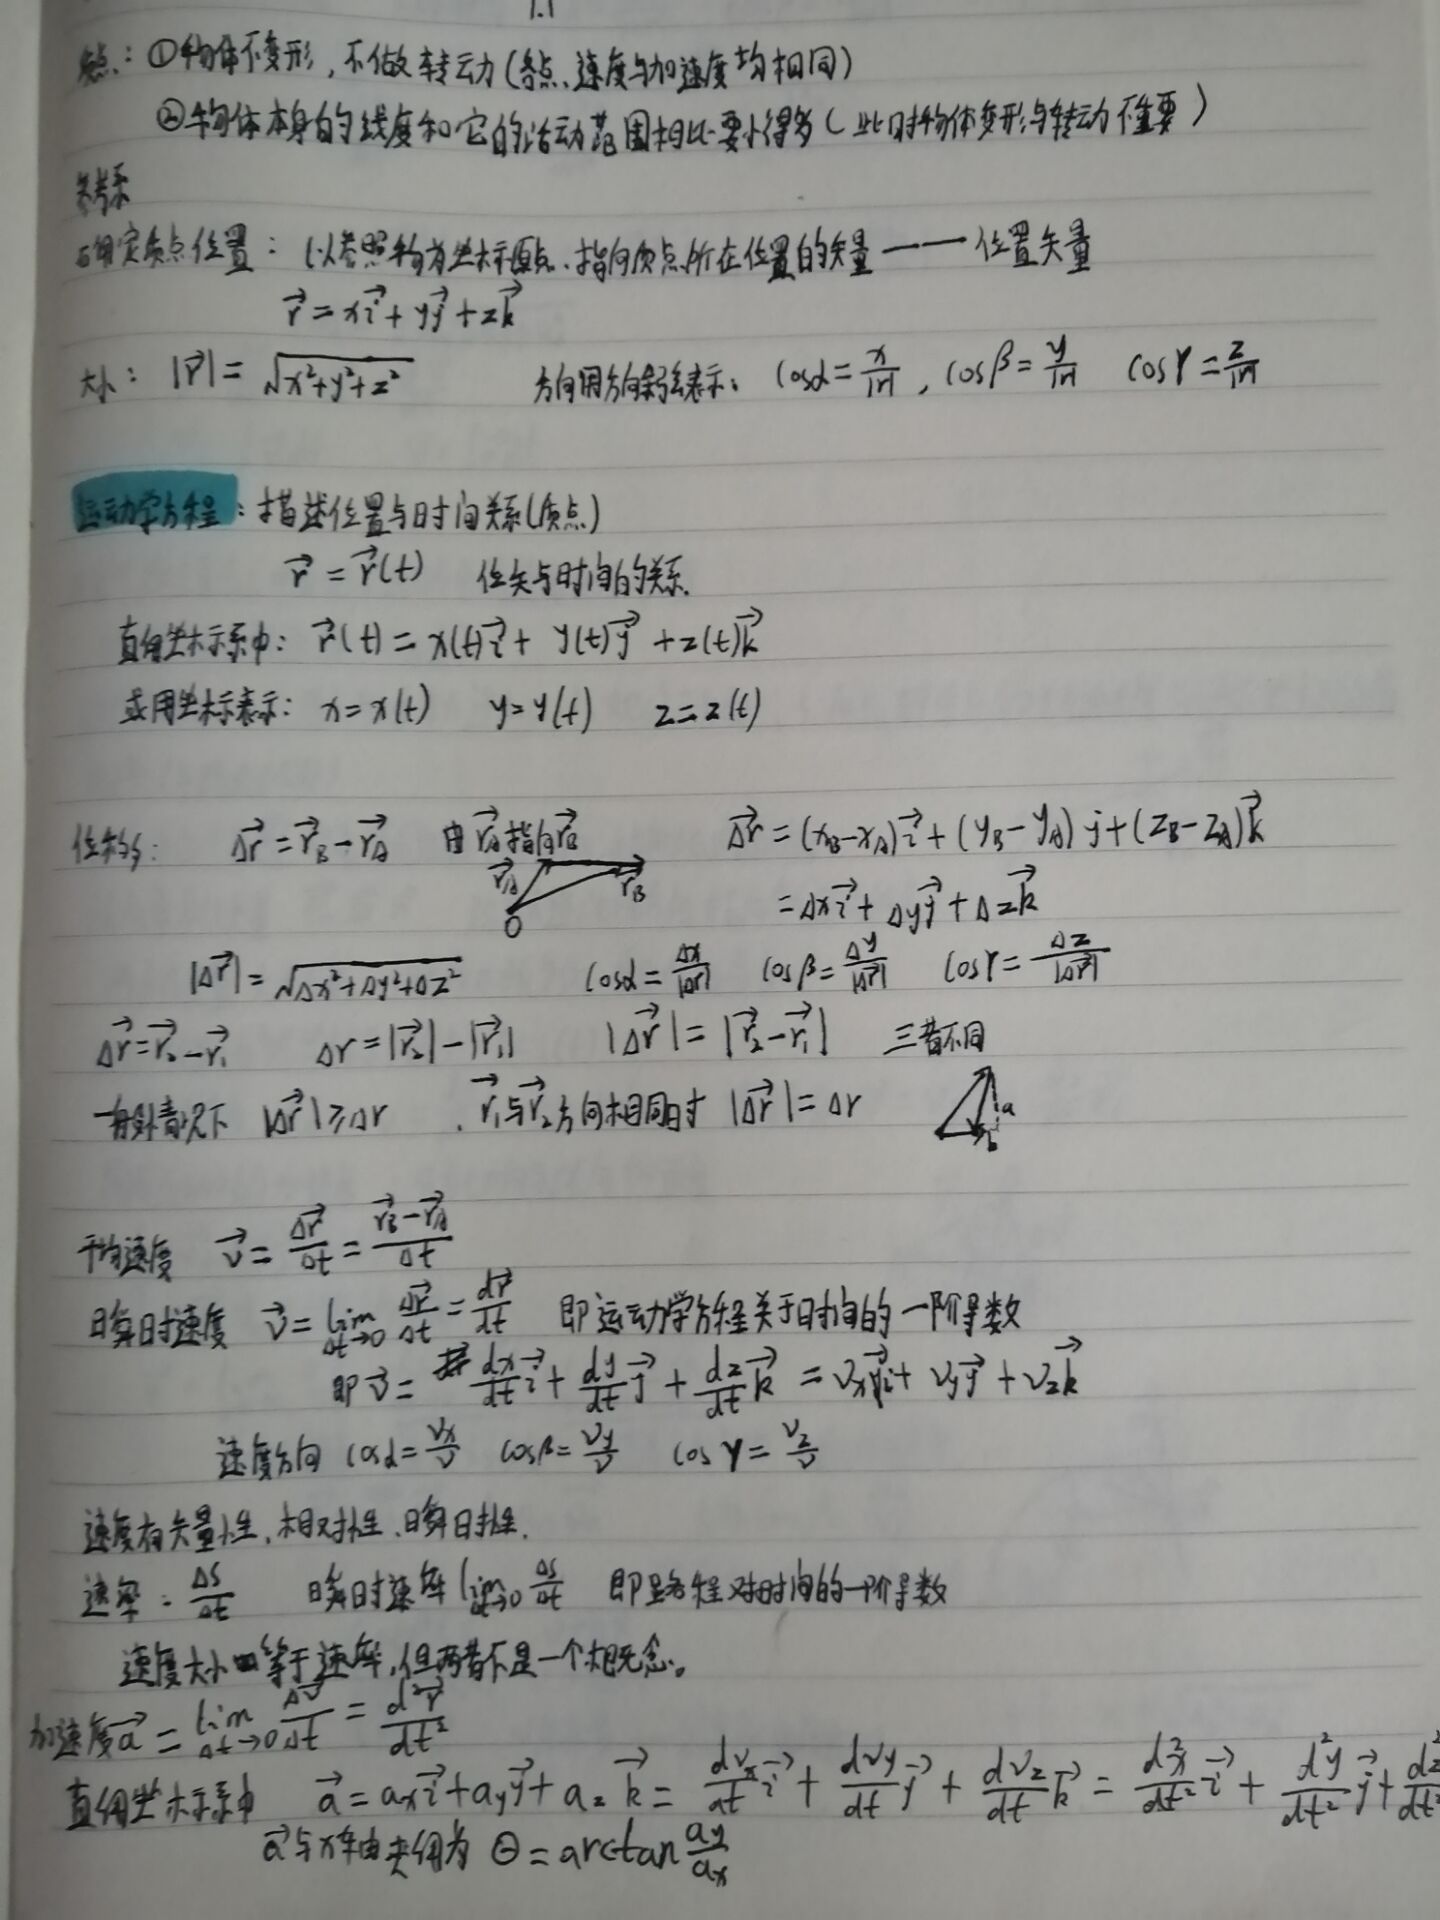 1.1
质点：①物体不变形，不做转动（各点、速度与加速度均相同）
②物体本身的线度和它的活动范围相比要小得多（此时物体变形与转动不重要）
参考系
确定质点位置：以参照物为坐标原点、指向质点所在位置的矢量——位置矢量
r⃗ = xi⃗ + yj⃗ + zk⃗
大小：|r⃗| = √(x²+y²+z²) 方向用方向余弦表示：cosα = x/|r|，cosβ = y/|r| cosγ = z/|r|
运动学方程：描述位置与时间关系（质点）
r⃗ = r⃗(t) 位矢与时间的关系.
直角坐标系中：r⃗(t) = x(t)i⃗ + y(t)j⃗ + z(t)k⃗
或用坐标表示：x=x(t) y=y(t) z=z(t)
位移：Δr⃗ = r⃗B − r⃗A 由r⃗A指向r⃗B Δr⃗ = (xB−xA)i⃗ + (yB−yA)j + (zB−zA)k⃗
r⃗A r⃗B O = Δxi⃗ + Δyj⃗ + Δzk⃗
|Δr⃗| = √(Δx²+Δy²+Δz²) cosα = Δx/|Δr⃗| cosβ = Δy/|Δr⃗| cosγ = Δz/|Δr⃗|
Δr⃗ = r⃗₂ − r⃗₁ Δr = |r⃗₂| − |r⃗₁| |Δr⃗| = |r⃗₂ − r⃗₁| 三者不同
一般情况下 |Δr⃗| ≥ Δr . r⃗₁与r⃗₂方向相同时 |Δr⃗| = Δr a b
平均速度 v⃗ = Δr⃗/Δt = (r⃗B − r⃗A)/Δt
瞬时速度 v⃗ = lim Δt→0 Δr⃗/Δt = dr⃗/dt 即运动学方程关于时间的一阶导数
即v⃗ = dx/dt i⃗ + dy/dt j⃗ + dz/dt k⃗ = vxi⃗ + vyj⃗ + vzk⃗
速度方向 cosα = vx/v cosβ = vy/v cosγ = vz/v
速度有矢量性、相对性、瞬时性.
速率：Δs/Δt 瞬时速率 lim Δt→0 Δs/Δt 即路程对时间的一阶导数
速度大小等于速率，但两者不是一个概念。
加速度a⃗ = lim Δt→0 Δv⃗/Δt = d²r⃗/dt²
直角坐标系中 a⃗ = axi⃗ + ayj⃗ + azk⃗ = dvx/dt i⃗ + dvy/dt j⃗ + dvz/dt k⃗ = d²x/dt² i⃗ + d²y/dt² j⃗ + d²z/dt²
a⃗与x轴夹角为 θ = arctan ay/ax